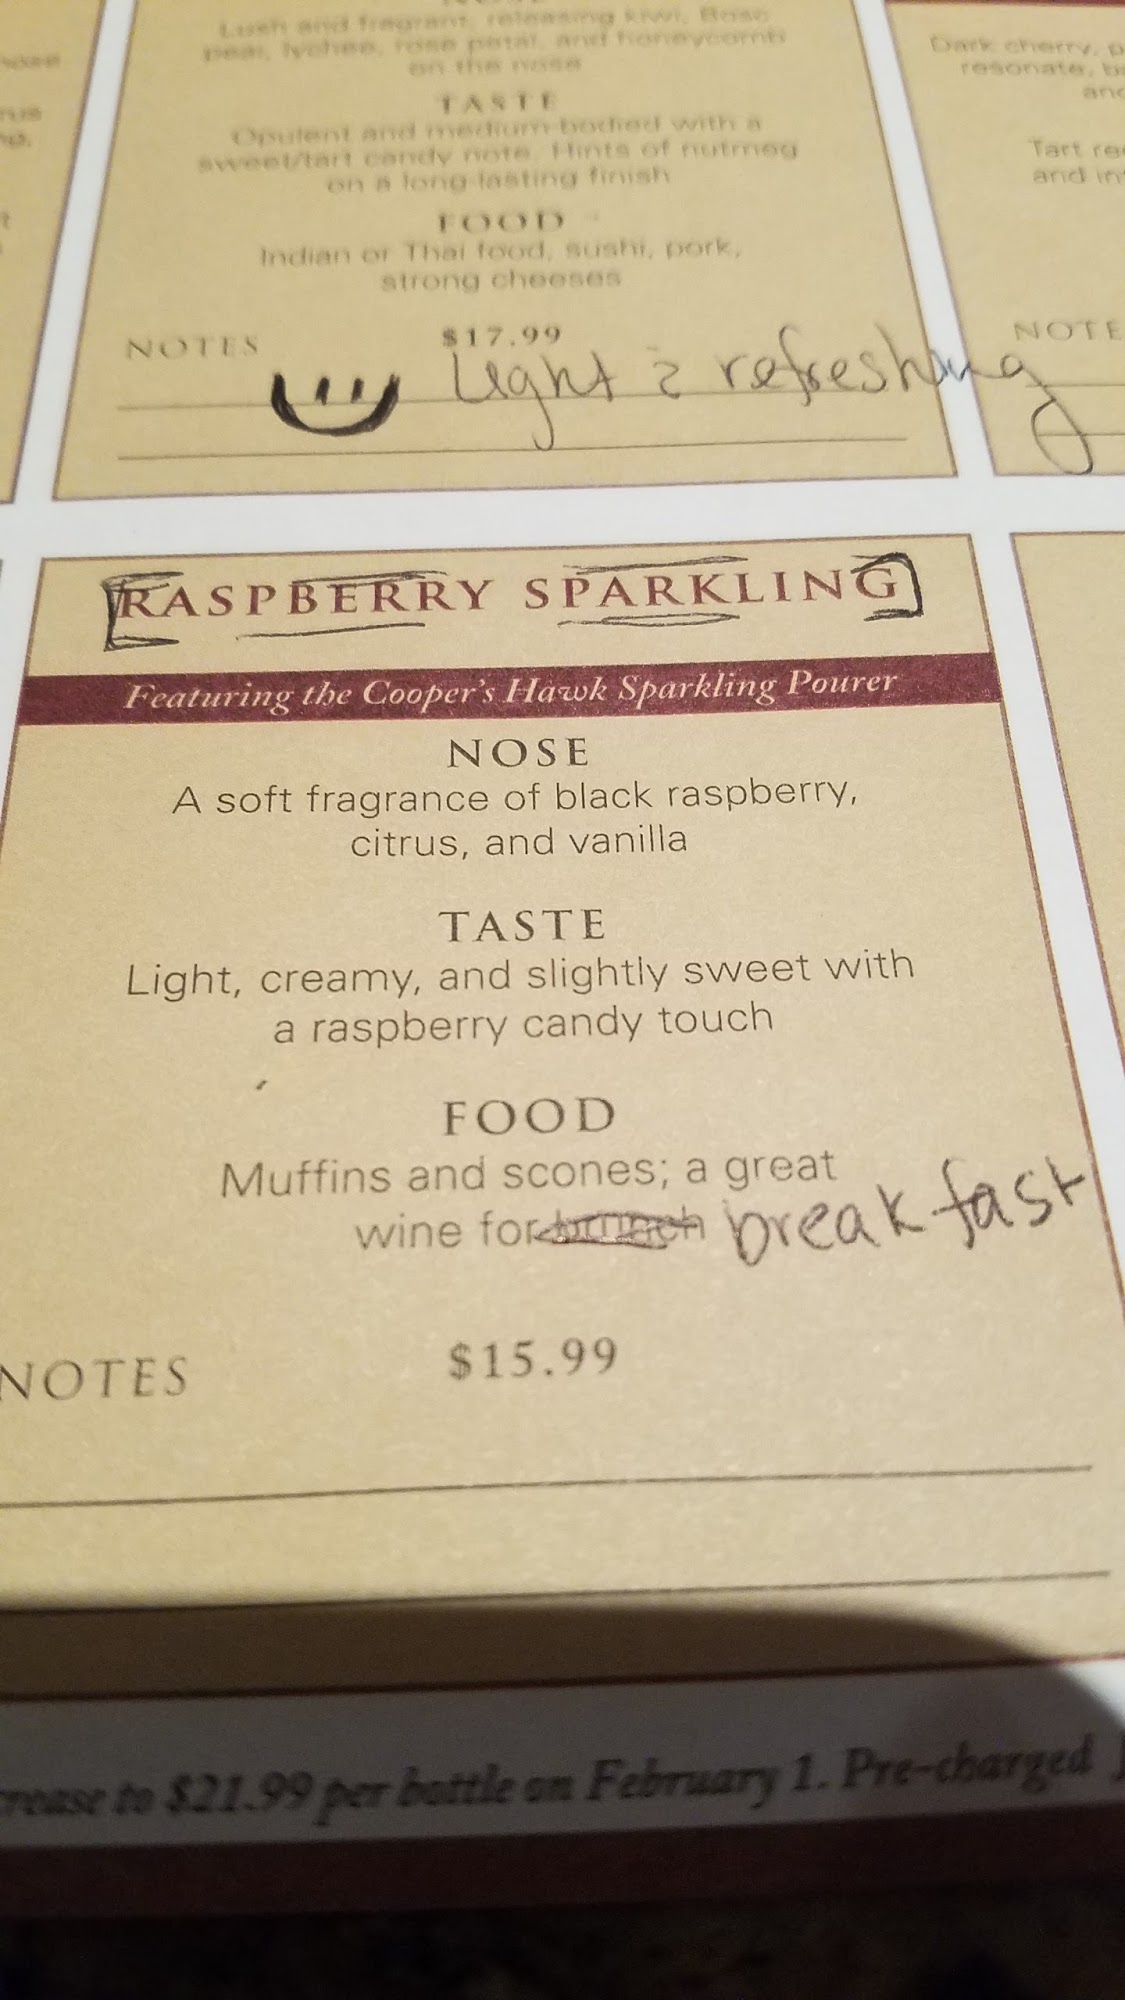 NOSE
Lush and fragrant, releasing kiwi, Bosc
pear, lychee, rose petal, and honeycomb
on the nose
TASTE
Opulent and medium-bodied with a
sweet/tart candy note. Hints of nutmeg
on a long-lasting finish
FOOD
Indian or Thai food, sushi, pork,
strong cheeses
NOTES $17.99
Light & refreshing
Dark cherry,
resonate,
and
Tart
and
RASPBERRY SPARKLING
Featuring the Cooper's Hawk Sparkling Pourer
NOSE
A soft fragrance of black raspberry,
citrus, and vanilla
TASTE
Light, creamy, and slightly sweet with
a raspberry candy touch
FOOD
Muffins and scones; a great
wine for brunch breakfast
NOTES $15.99
to $21.99 per bottle on February 1. Pre-charged